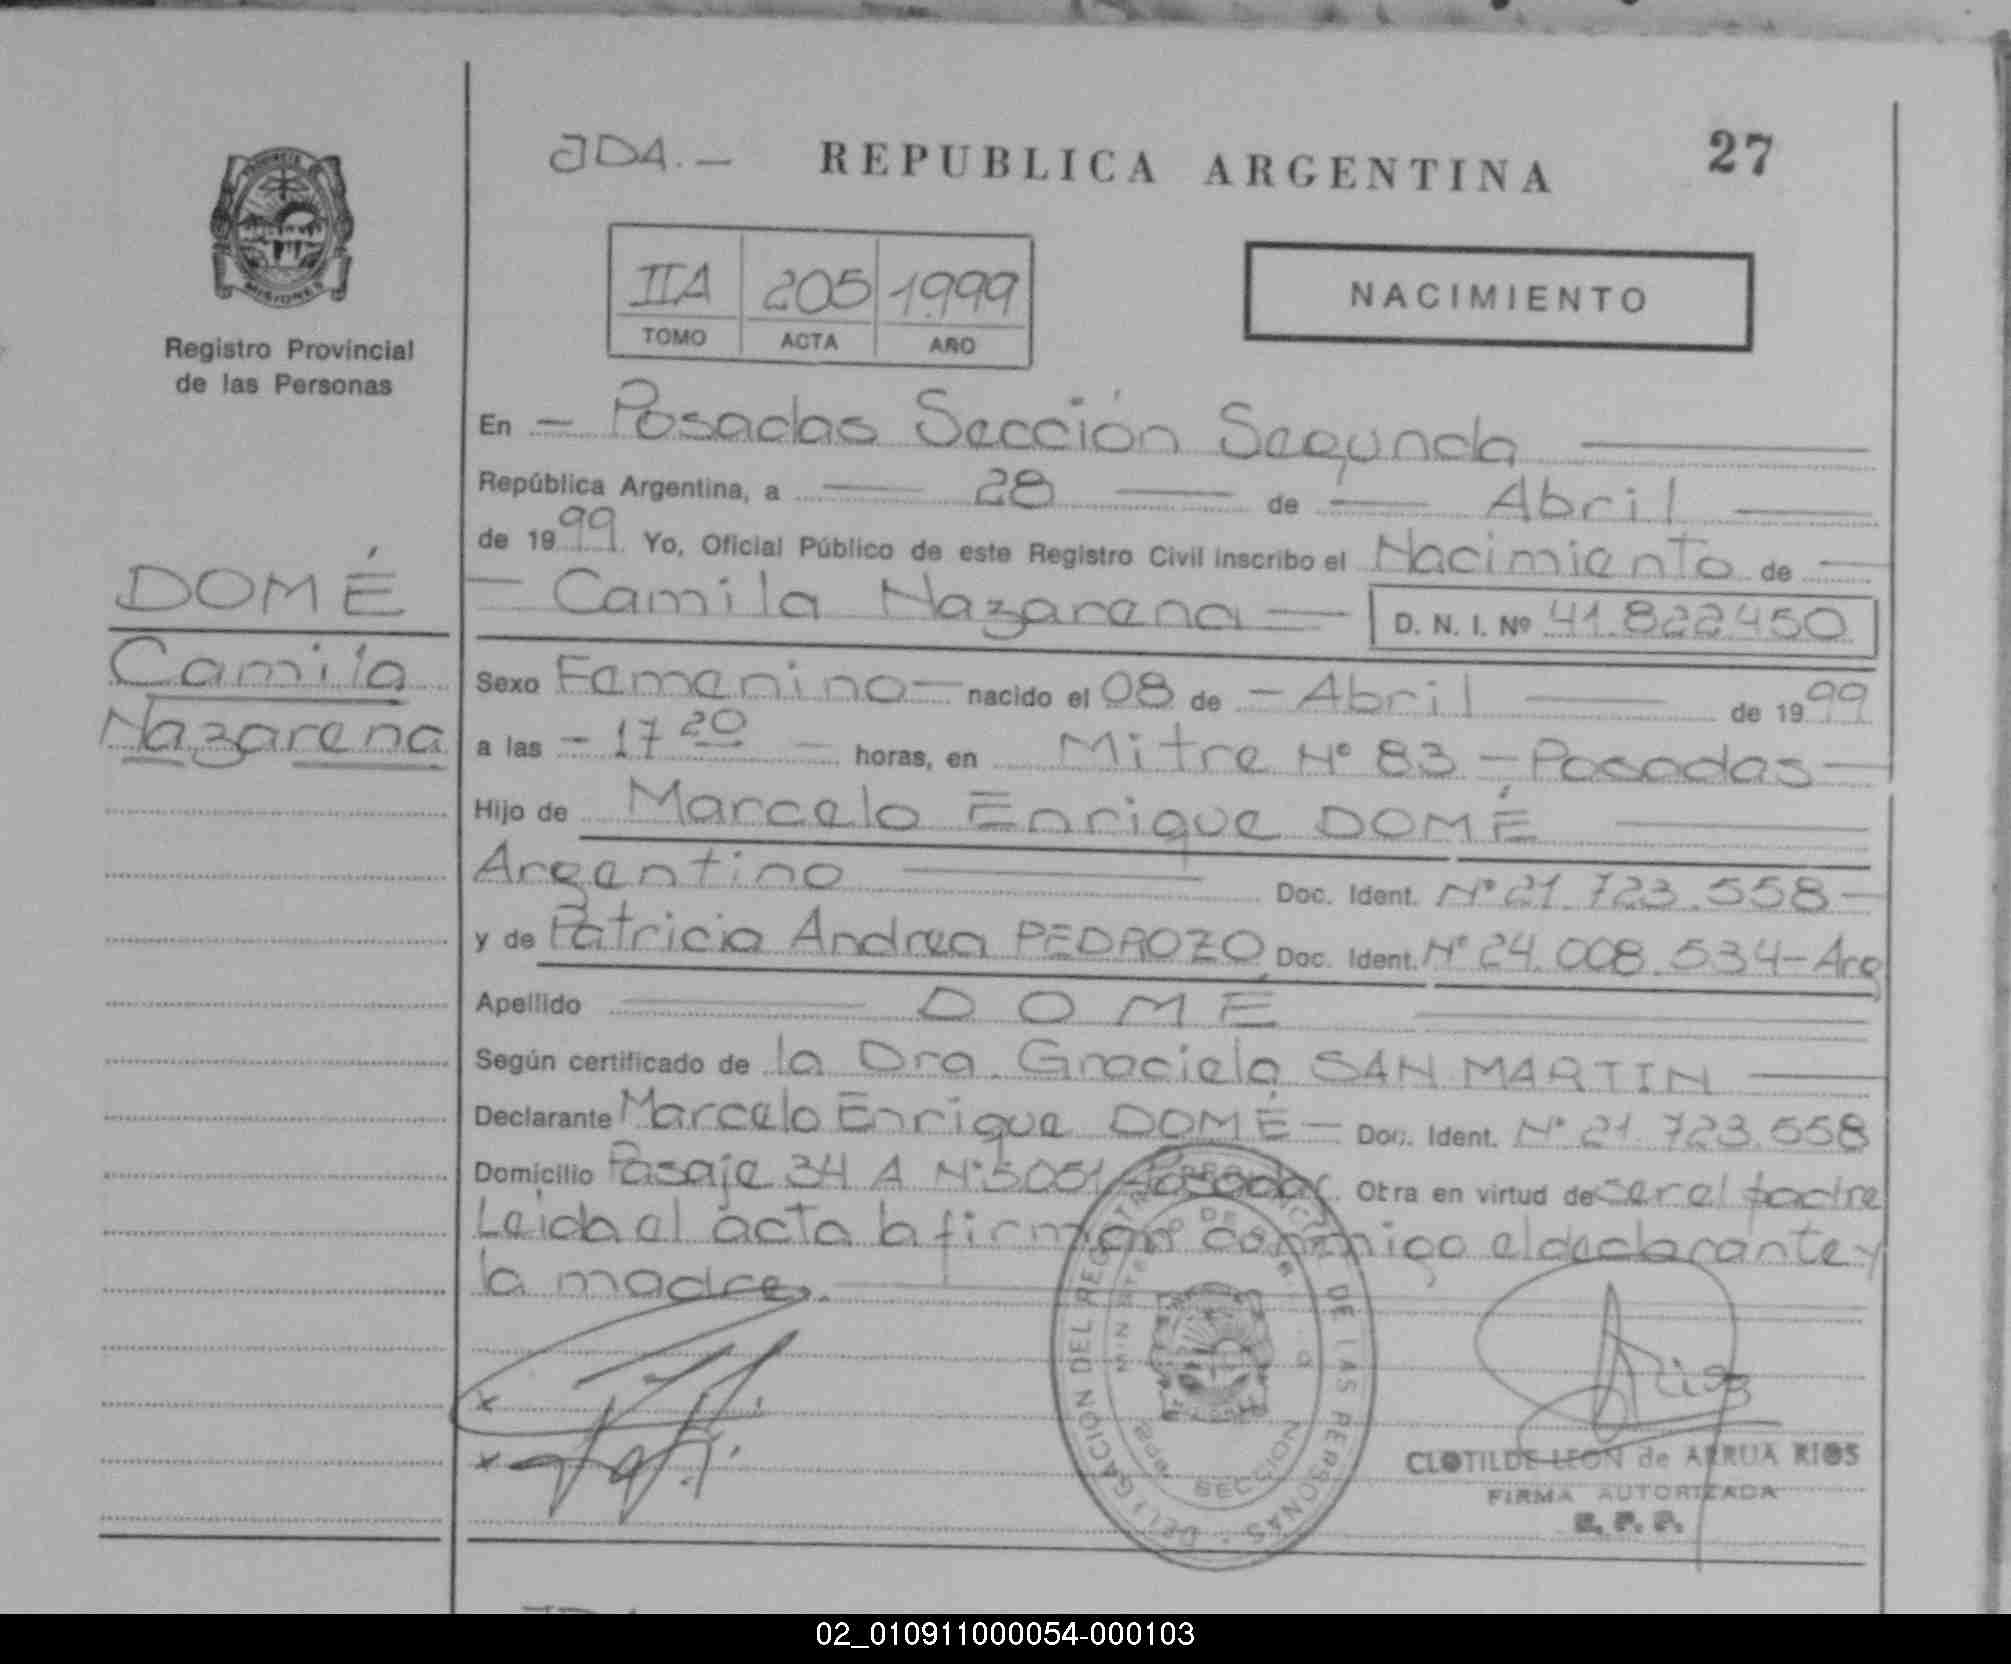 JDA.- REPUBLICA ARGENTINA 27
MISIONES
Registro Provincial
de las Personas
IIA 205 1999
TOMO ACTA AÑO
NACIMIENTO
En - Posadas Sección Segunda
República Argentina, a 28 de Abril
de 1999 Yo, Oficial Público de este Registro Civil inscribo el Nacimiento de
DOMÉ
Camila
Nazarena
- Camila Nazarena - D. N. I. Nº 41.822450
Sexo Femenino - nacido el 08 de - Abril de 1999
a las - 17 20 - horas, en Mitre Nº 83 - Posadas -
Hijo de Marcelo Enrique DOMÉ
Argentino Doc. Ident. Nº 21.723.558 -
y de Patricia Andrea PEDROZO Doc. Ident. Nº 24.008.534-Arg
Apellido DOMÉ
Según certificado de la Dra. Graciela SAN MARTIN
Declarante Marcelo Enrique DOMÉ - Doc. Ident. Nº 21.723.558
Domicilio Pasaje 34 A Nº 5051 Posadas. Otra en virtud de ser el padre
Leida el acta la firman conmigo el declarante y
la madre.
DELEGACION DEL REGISTRO PROVINCIAL DE LAS PERSONAS
SECCION
CLOTILDE LEON de ARRUA RIOS
FIRMA AUTORIZADA
R. P. P.
02_010911000054-000103